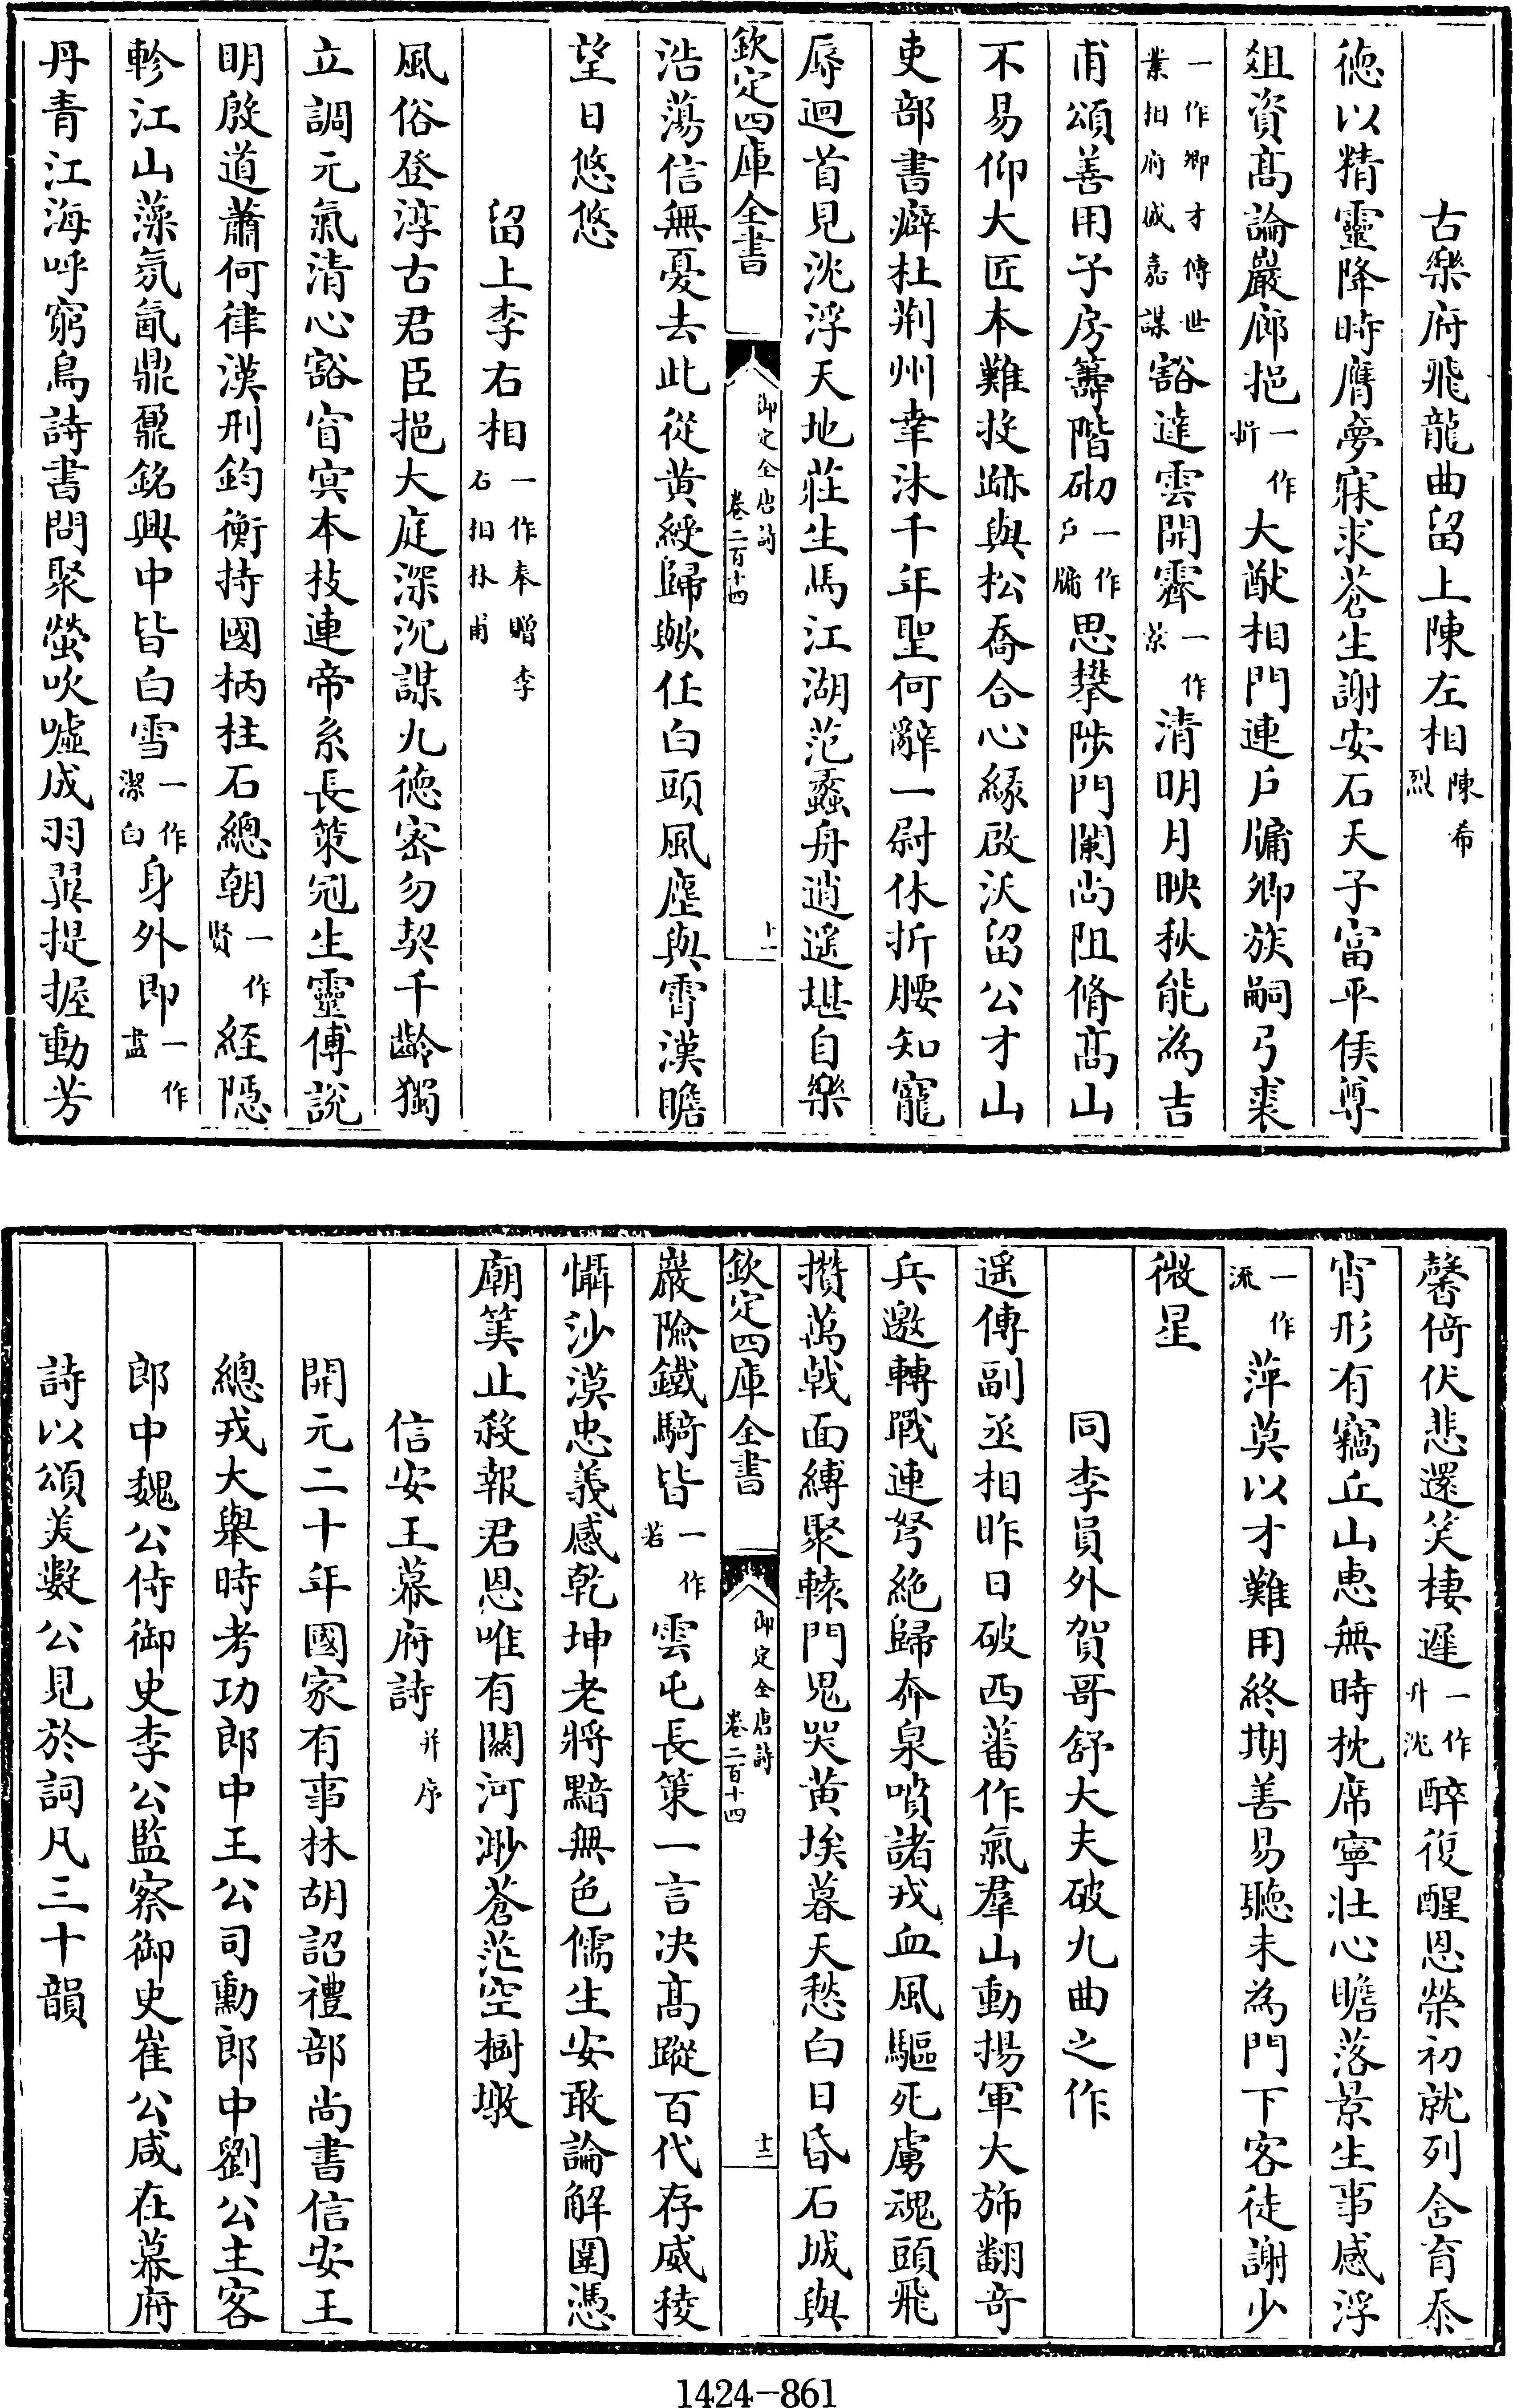 古樂府飛龍曲留上陳左相陳希烈
徳以精靈降時膺夢寐求蒼生謝安石天子富平侯尊
俎資髙論巖廊挹一作折大猷相門連戶牖卿族嗣弓裘
一作卿才傳世業相府儎嘉謀豁達雲開霽一作景清明月映秋能為吉
甫頌善用子房籌階砌一作戶牖思攀陟門闌尚阻脩髙山
不易仰大匠本難投跡與松喬合心緣啟沃留公才山
吏部書癖杜荆州幸沐千年聖何辭一尉休折腰知寵
辱迴首見沈浮天地莊生馬江湖范蠡舟逍遥堪自樂
欽定四庫全書 御定全唐詩 卷二百十四 十一
浩蕩信無憂去此從黄綬歸歟任白頭風塵與霄漢瞻
望日悠悠
留上李右相一作奉贈李右相林甫
風俗登淳古君臣挹大庭深沉謀九徳宻勿契千齡獨
立調元氣清心豁窅㝠本枝連帝系長策冠生靈傅説
明殷道蕭何律漢刑鈞衡持國柄柱石總朝一作賢經隠
軫江山藻氛氳鼎鼐銘興中皆白雪一作潔白身外即一作盡
丹青江海呼窮鳥詩書問聚螢吹嘘成羽翼提握動芳
馨倚伏悲還笑棲遲一作升沈醉復醒恩榮初就列含育忝
宵形有竊丘山恵無時枕席寧壯心瞻落景生事感浮
一作流萍莫以才難用終期善易聽未為門下客徒謝少
微星
同李員外賀哥舒大夫破九曲之作
遥傳副丞相昨日破西蕃作氣羣山動揚軍大斾翻竒
兵邀轉戰連弩絶歸奔泉噴諸戎血風驅死虜魂頭飛
攢萬㦸面縛聚轅門鬼哭黄埃暮天愁白日昏石城與
欽定四庫全書 御定全唐詩 卷二百十四 十二
巖險鐵騎皆一作若雲屯長策一言決髙蹤百代存威稜
懾沙漠忠義感乾坤老將黯無色儒生安敢論解圍憑
廟筭止殺報君恩唯有關河渺蒼茫空樹墩
信安王幕府詩并序
開元二十年國家有事林胡詔禮部尚書信安王
總戎大舉時考功郎中王公司勳郎中劉公主客
郎中魏公侍御史李公監察御史崔公咸在幕府
詩以頌美數公見於詞凡三十韻
1424-861